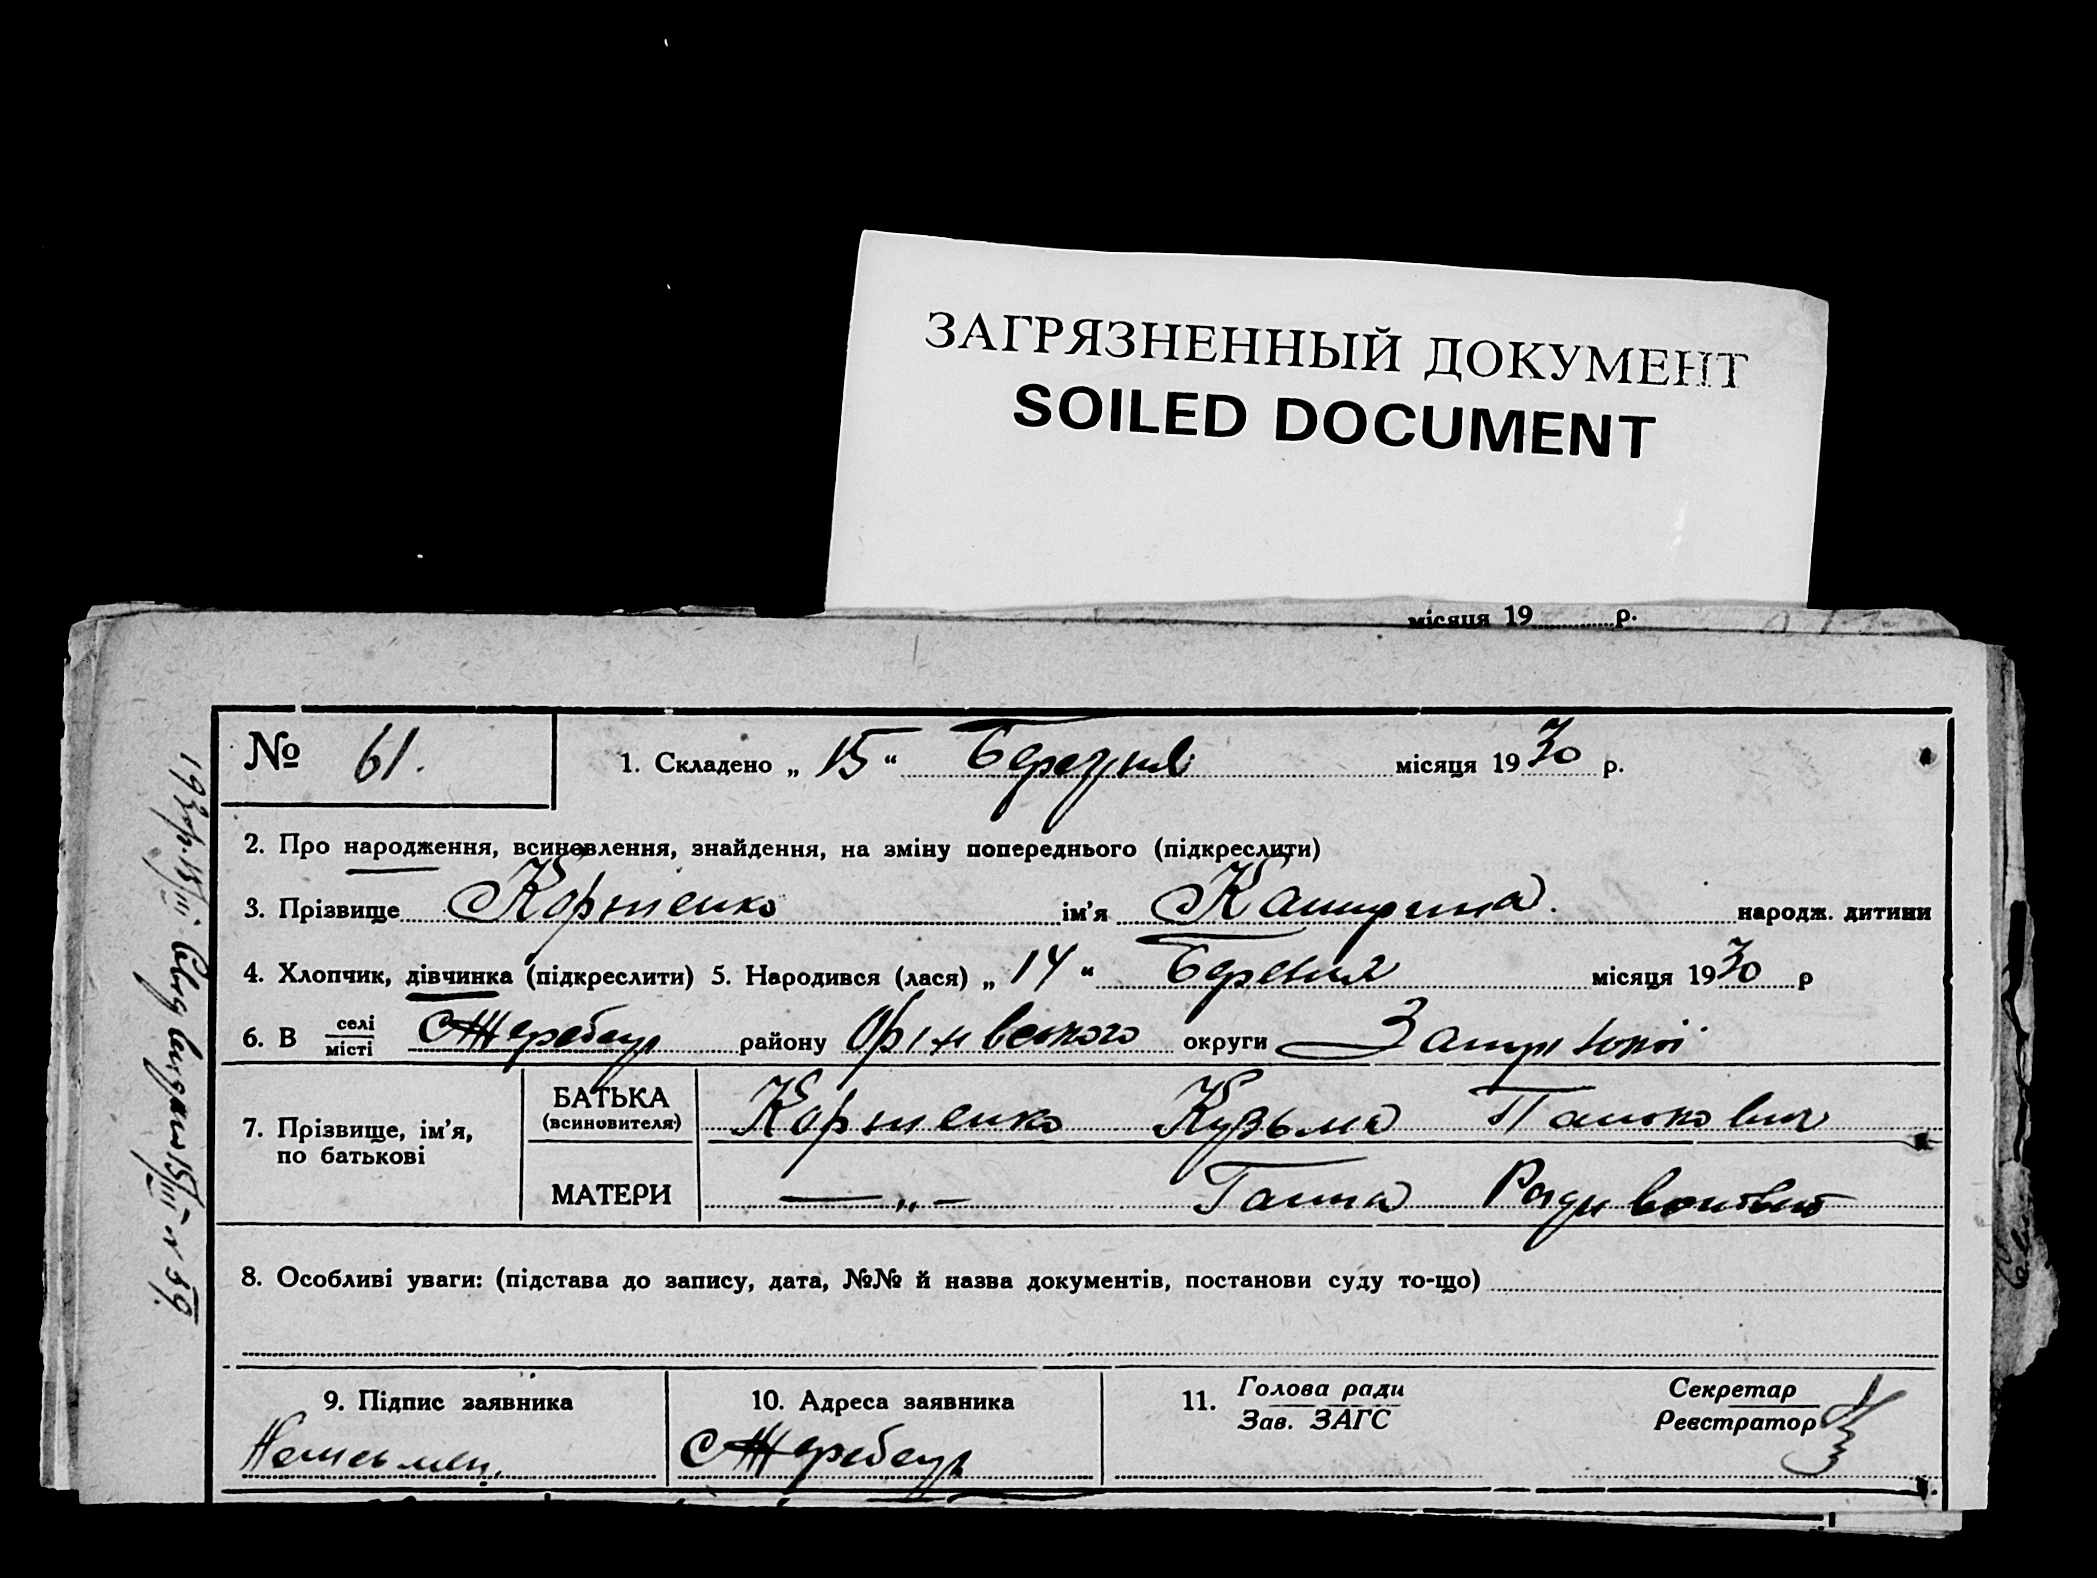 ЗАГРЯЗНЕННЫЙ ДОКУМЕНТ
SOILED DOCUMENT
місяця 19 р.
№ 61.
1. Складено „ 15 “ Березня місяця 1930 р.
2. Про народження, всиновлення, знайдення, на зміну попереднього (підкреслити)
3. Прізвище Коршенко ім'я народж. дитини
4. Хлопчик, дівчинка (підкреслити) 5. Народився (лася) „ 14 “ Березня місяця 1930 р
6. В селі місті С Жеребець району Оріхівського округи
7. Прізвище, ім'я, по батькові
БАТЬКА (всиновителя) Коршенко Кузьма Панькович
МАТЕРИ — „ — Ганна
8. Особливі уваги: (підстава до запису, дата, №№ й назва документів, постанови суду то-що)
9. Підпис заявника
10. Адреса заявника
С Жеребець
11. Голова ради
Зав. ЗАГС
Секретар
Реєстратор